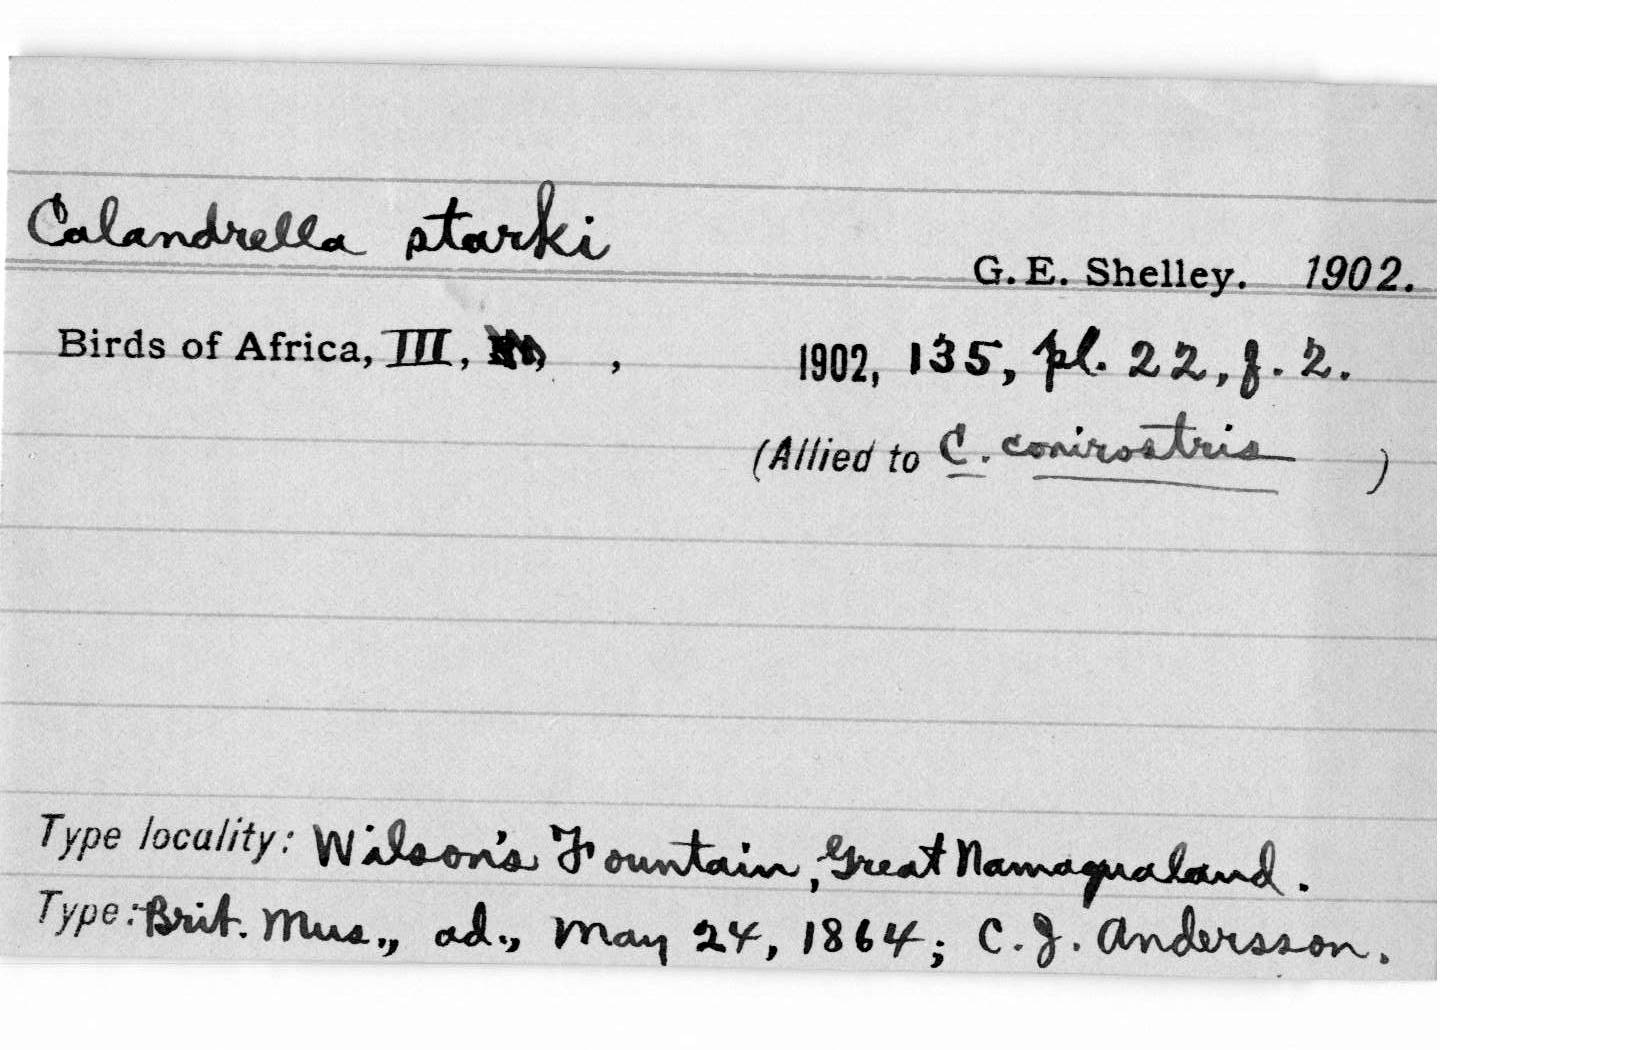 Calandrella starki
G. E. Shelley. 1902.
Birds of Africa, III, , 1902, 135, pl. 22, f. 2.
(Allied to C. conirostris )
Type locality: Wilson's Fountain, Great Namaqualand.
Type: Brit. Mus., ad., May 24, 1864; C. J. Andersson.